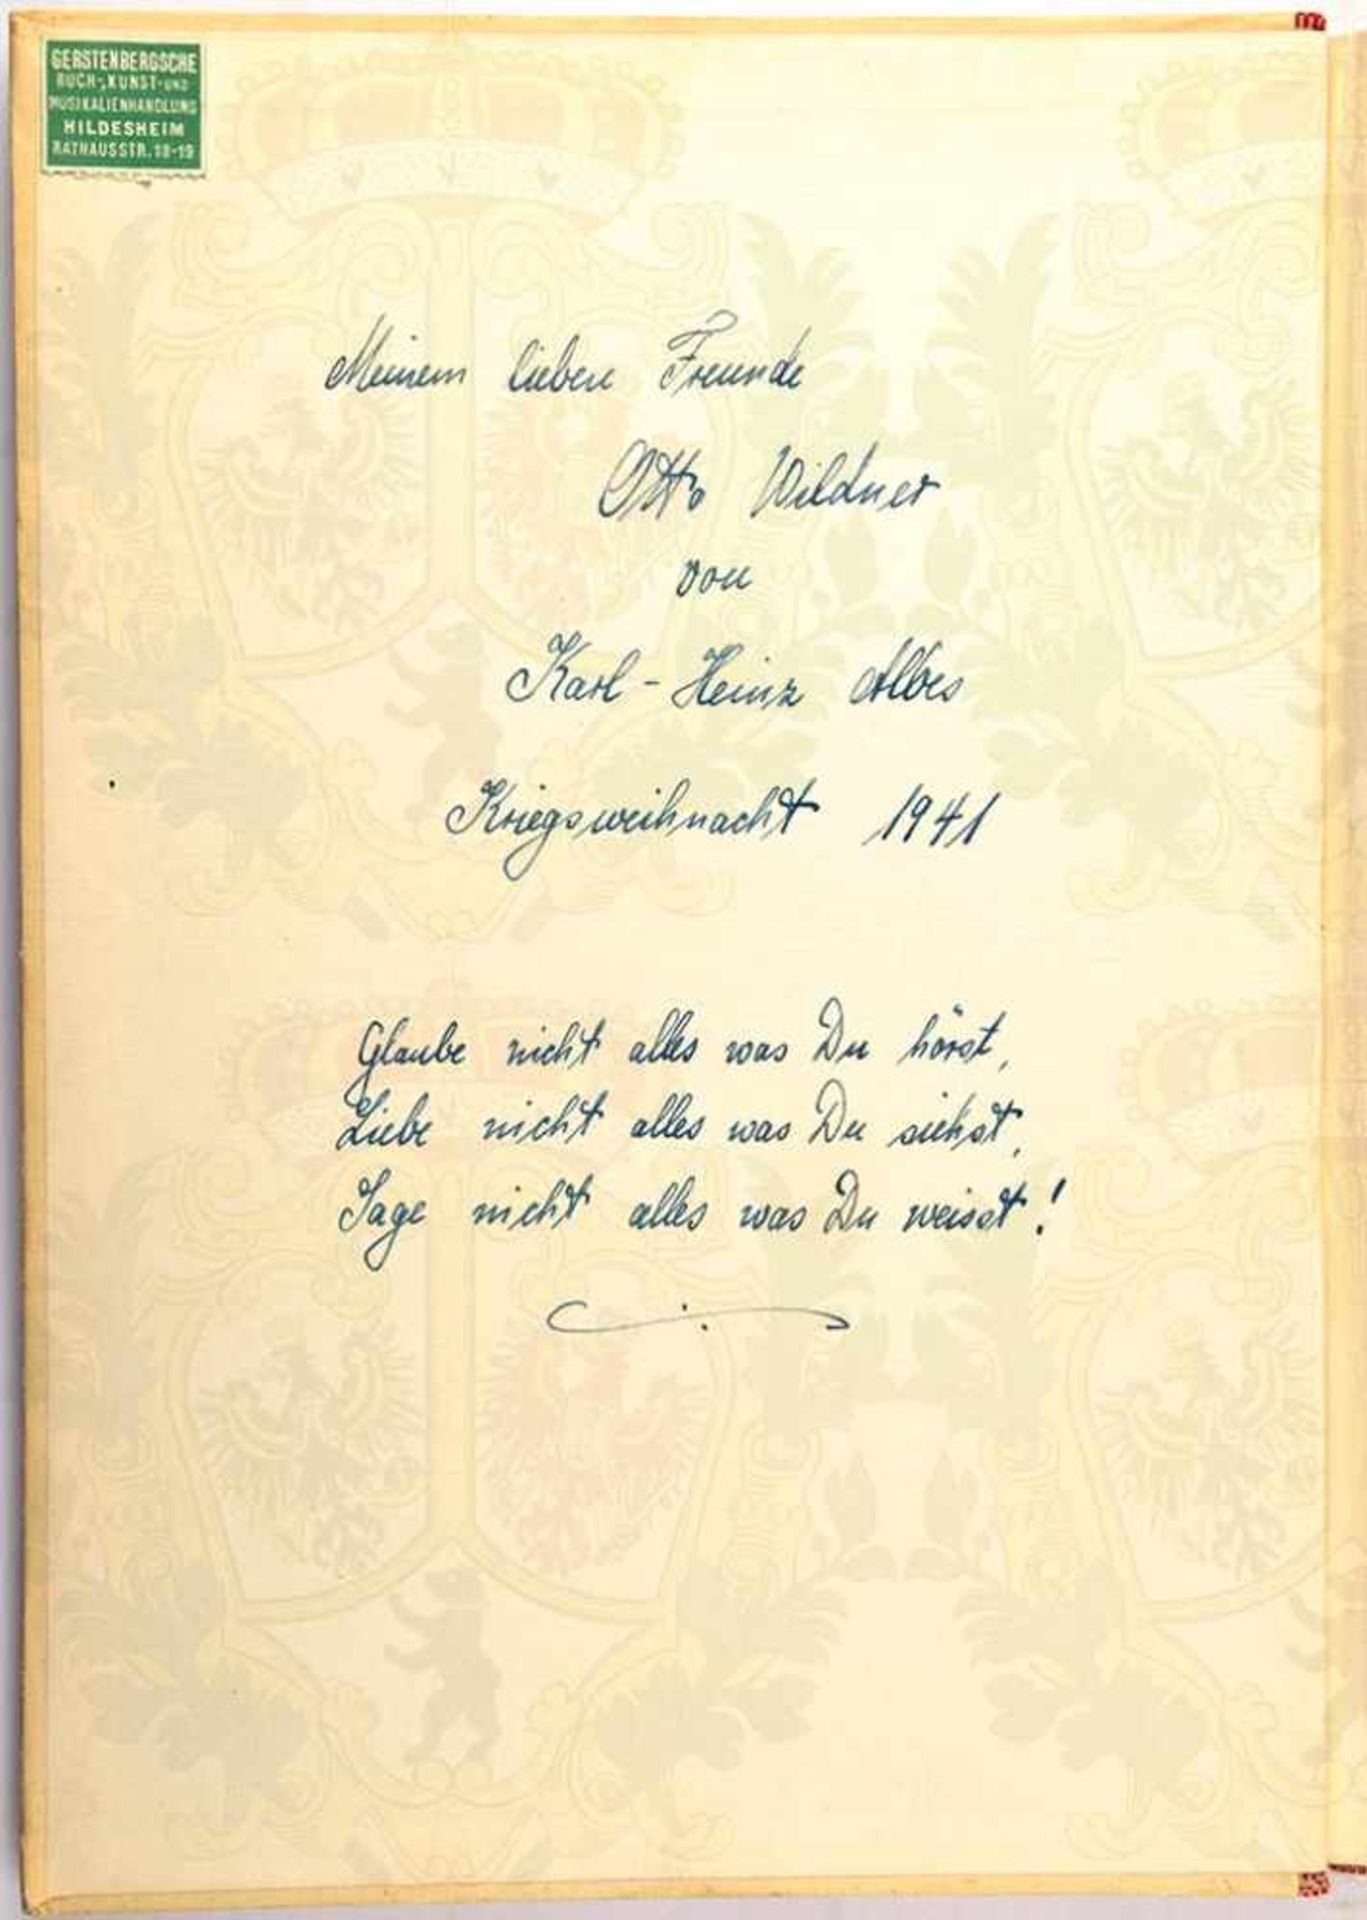 GERSTENBERGSCHE
BUCH-, KUNST- UND
MUSIKALIENHANDLUNG
HILDESHEIM
RATHAUSSTR. 18-19
Meinem lieben Freunde
Otto Wildner
von
Karl-Heinz Albes
Kriegsweihnacht 1941
Glaube nicht alles was Du hörst,
Liebe nicht alles was Du siehst,
Sage nicht alles was Du weisst!